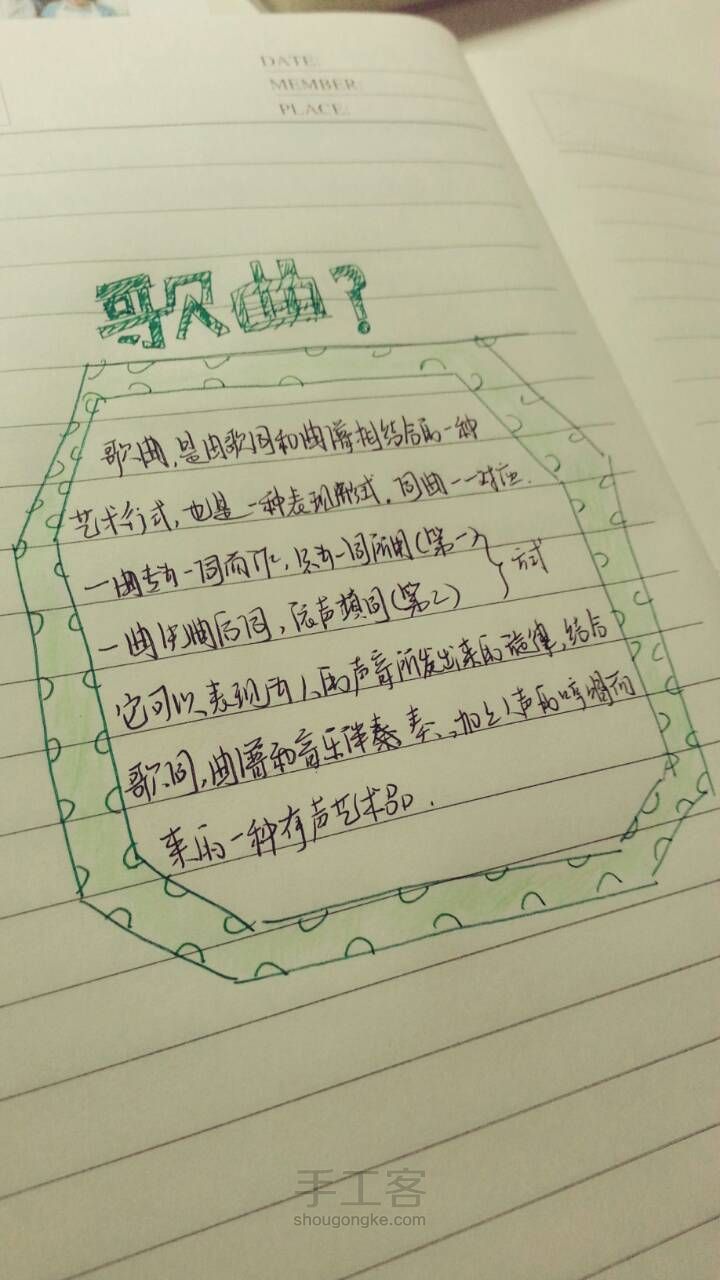 DATE:
MEMBER:
PLACE:
歌曲?
歌曲,是由歌词和曲谱相结合的一种
艺术行式,也是一种表现形式.词曲一一对应.
一曲专为一词而作,只为一词所用(第一)
一曲先曲后词,依声填词(第二)
方式
它可以表现为人的声音所发出来的旋律,结合
歌词,曲谱和音乐伴奏,加之人声的哼唱而
来的一种有声艺术品.
手工客
shougongke.com